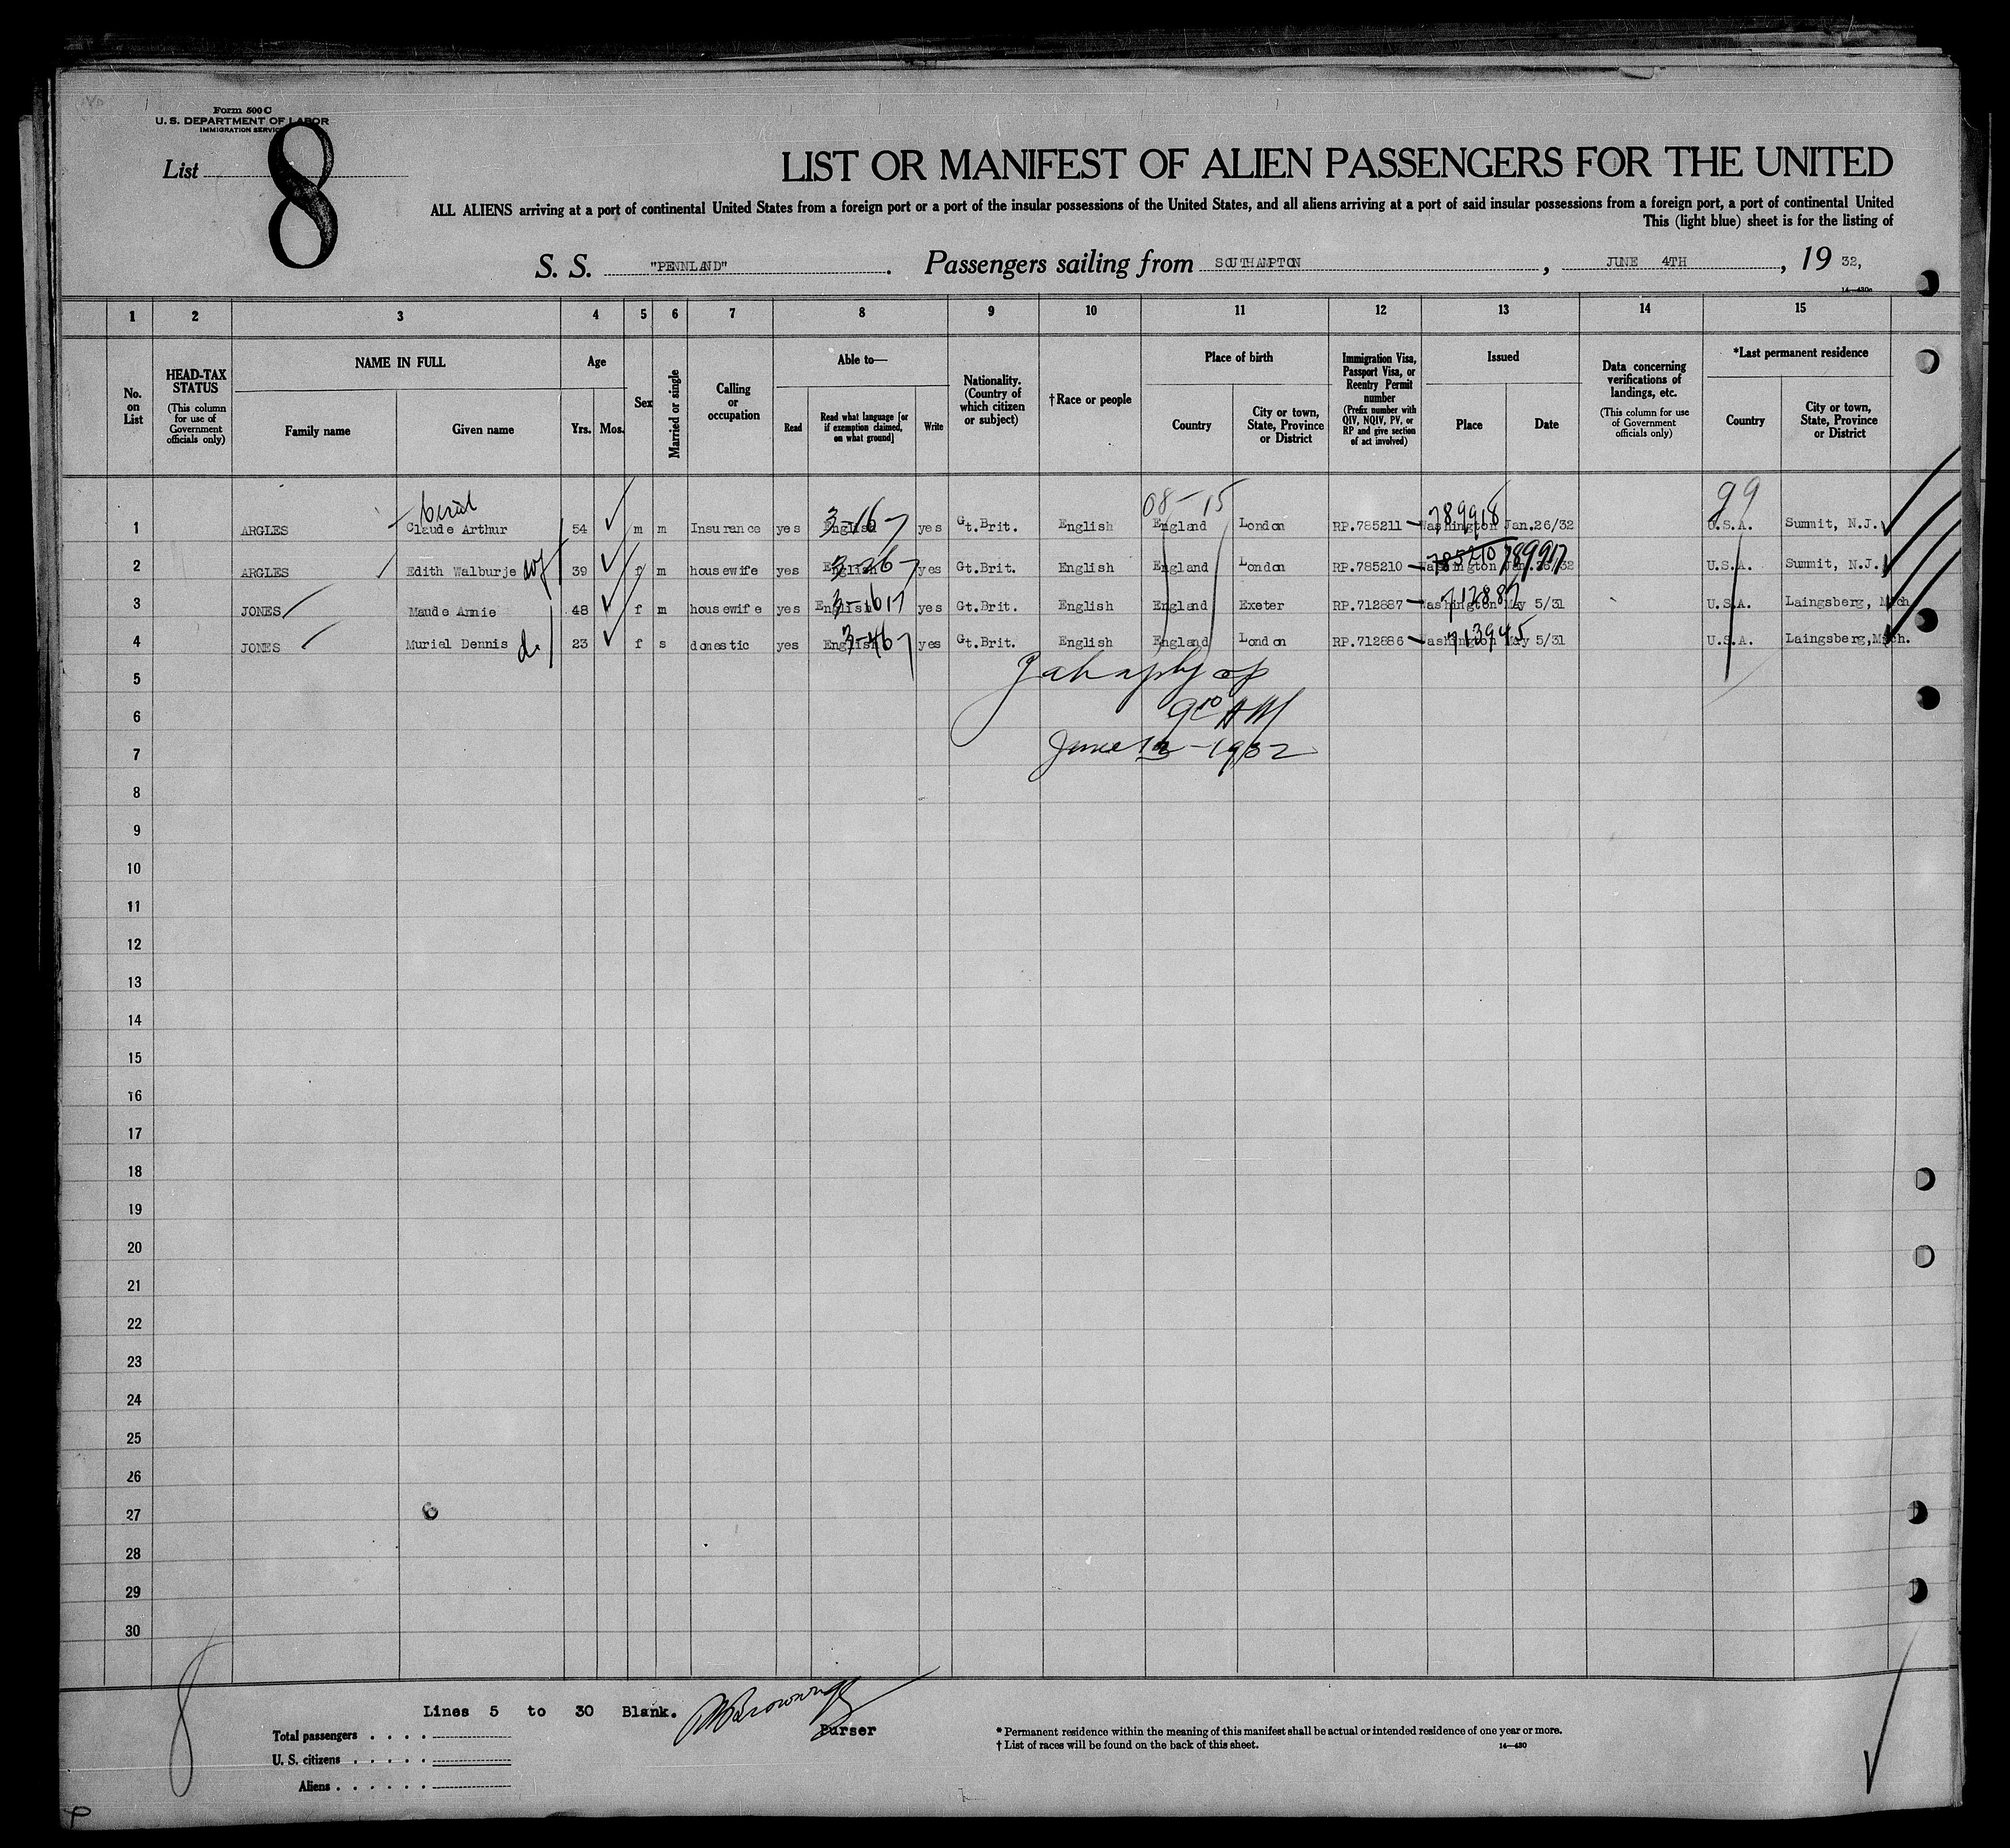 Form 500 C
U. S. DEPARTMENT OF LABOR
IMMIGRATION SERVICE
List 8
LIST OR MANIFEST OF ALIEN PASSENGERS FOR THE UNITED
ALL ALIENS arriving at a port of continental United States from a foreign port or a port of the insular possessions of the United States, and all aliens arriving at a port of said insular possessions from a foreign port, a port of continental United
This (light blue) sheet is for the listing of
S. S. "PENNLAND". Passengers sailing from SOUTHAMPTON, JUNE 4TH, 19 32,
1 2 3 4 5 6 7 8 9 10 11 12 13 14 15
No. on List
HEAD-TAX STATUS (This column for use of Government officials only)
NAME IN FULL
Family name Given name
Age
Yrs. Mos.
Sex
Married or single
Calling or occupation
Able to—
Read Read what language [or if exemption claimed, on what ground] Write
Nationality. (Country of which citizen or subject)
†Race or people
Place of birth
Country City or town, State, Province or District
Immigration Visa, Passport Visa, or Reentry Permit number (Prefix number with QIV, NQIV, PV, or RP and give section of act involved)
Issued
Place Date
Data concerning verifications of landings, etc. (This column for use of Government officials only)
*Last permanent residence
Country City or town, State, Province or District
08-15 789918 99
1 ARGLES Claude Arthur 54 m m Insurance yes English 3-16-7 yes Gt.Brit. English England London RP.785211 Washington Jan.26/32 U.S.A. Summit, N.J.
785210 789917
2 ARGLES Edith Walburje wf 39 f m housewife yes English 3-26-7 yes Gt.Brit. English England London RP.785210 Washington Jan.26/32 U.S.A. Summit, N.J.
712887
3 JONES Maude Annie 48 f m housewife yes English yes Gt.Brit. English England Exeter RP.712887 Washington May 5/31 U.S.A. Laingsberg, Mich.
713945
4 JONES Murial Dennis d. 23 f s domestic yes English 3-46-7 yes Gt.Brit. English England London RP.712886 Washington May 5/31 U.S.A. Laingsberg, Mich.
5
6 9 10 AM
7 June 13-1932
8
9
10
11
12
13
14
15
16
17
18
19
20
21
22
23
24
25
26
27
28
29
30
8
Lines 5 to 30 Blank.
Purser
Total passengers . . . .
U. S. citizens . . . . .
Aliens . . . . . .
* Permanent residence within the meaning of this manifest shall be actual or intended residence of one year or more.
† List of races will be found on the back of this sheet.
14—430